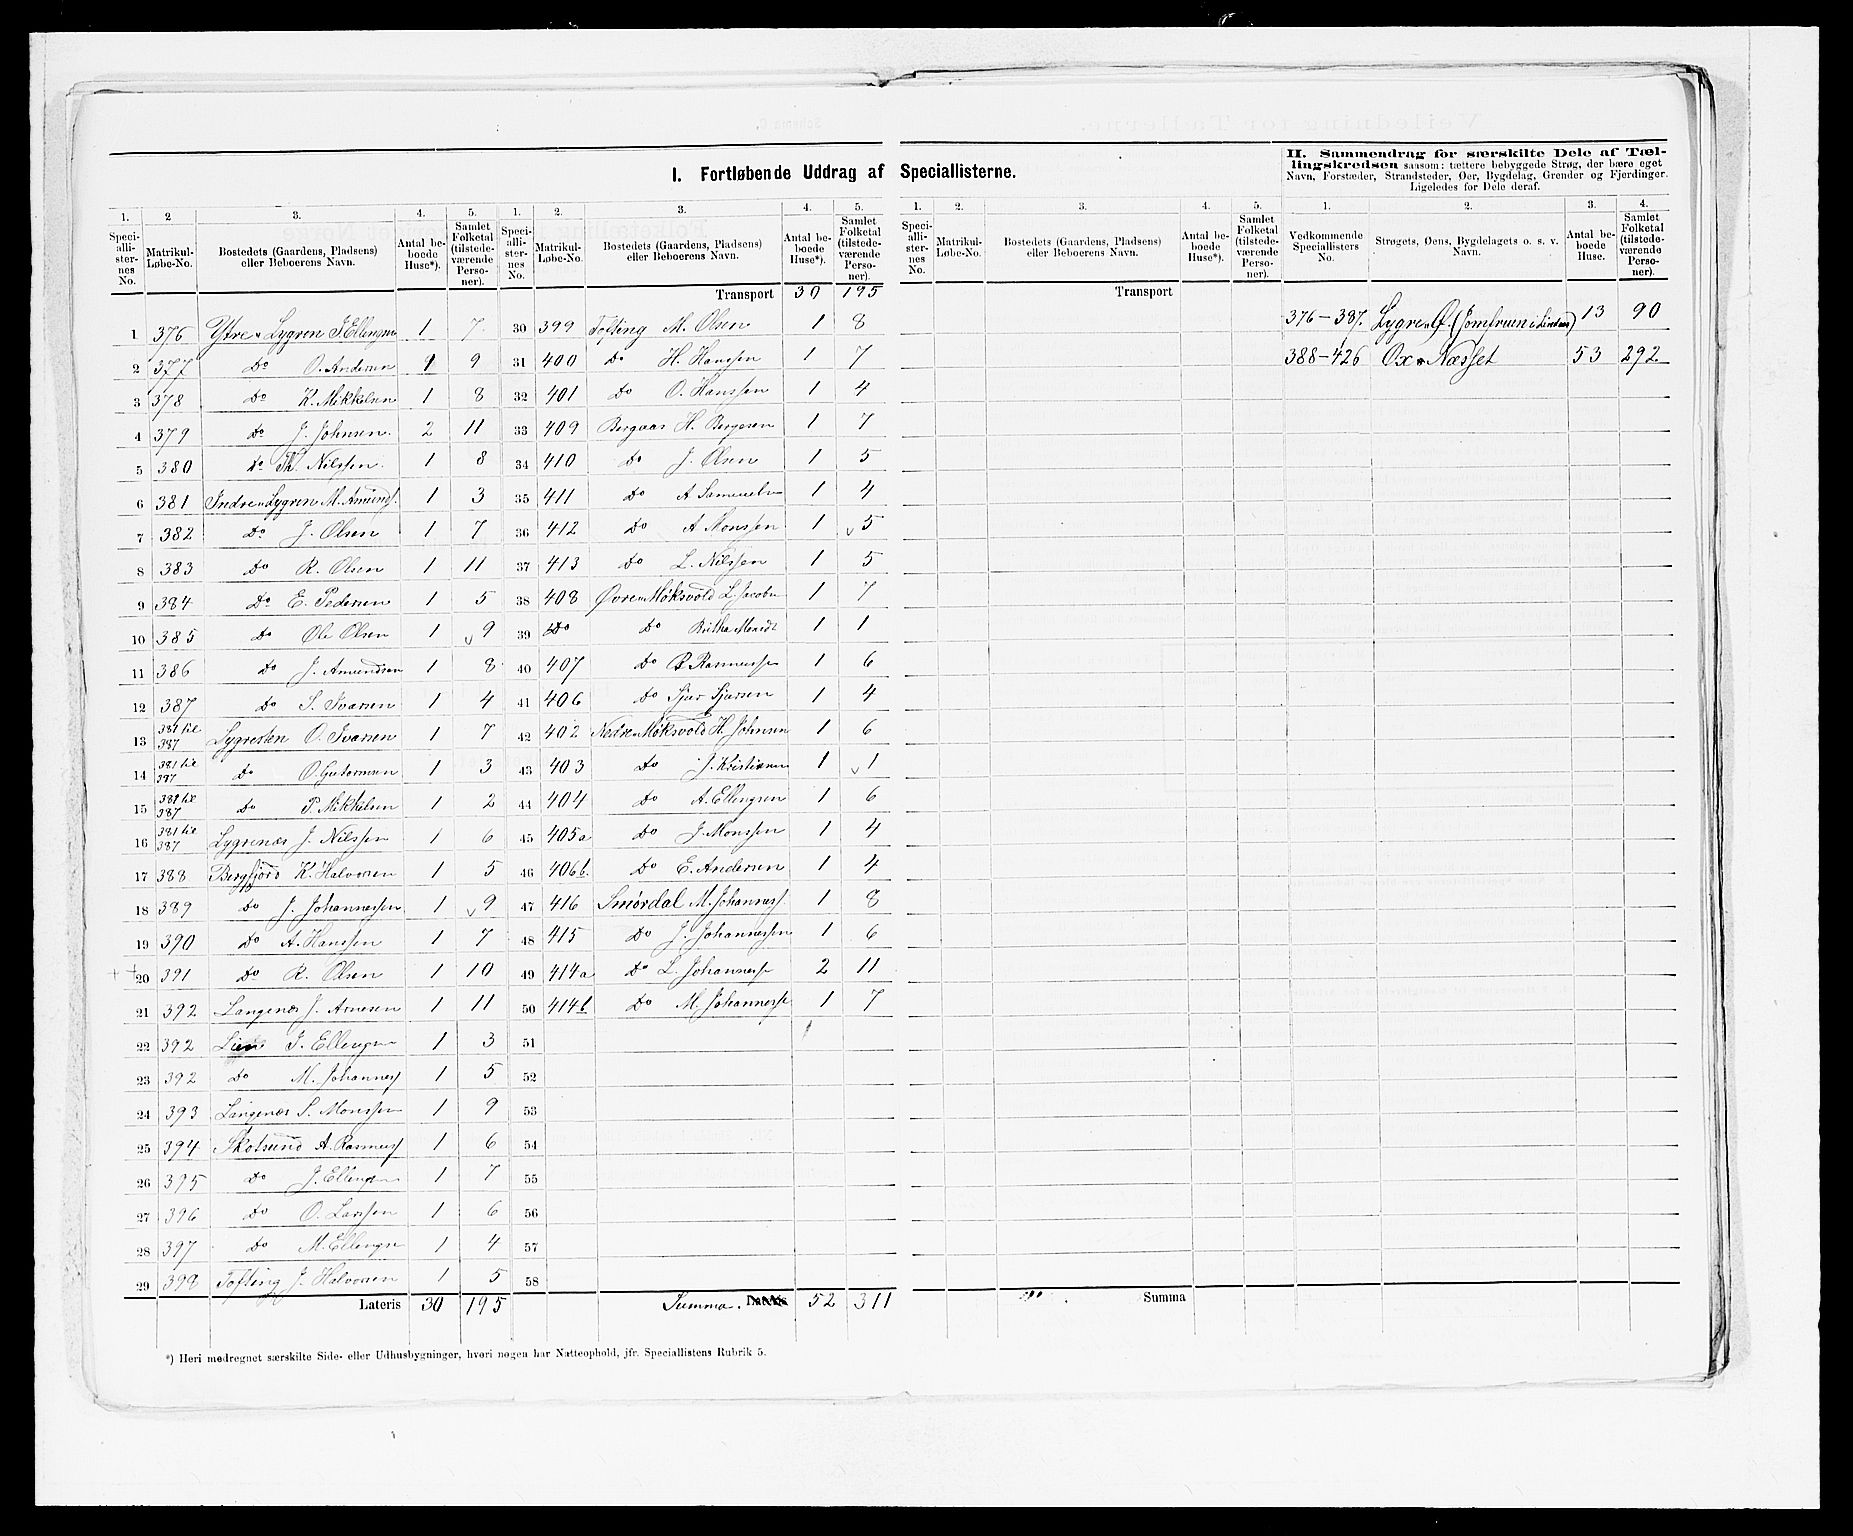 I. Fortløbende Uddrag af Speciallisterne.
II. Sammendrag for særskilte Dele af Tællingskredsen saasom: tættere bebyggede Strøg, der bære eget
Navn, Forstæder, Strandsteder, Øer, Bygdelag, Grender og Fjerdinger.
Ligeledes for Dele deraf.
1. 2 3. 4. 5. 1. 2. 3. 4. 5. 1. 2. 3. 4. 5. 1. 2. 3. 4.
Speciallisternes No. Matrikul-Løbe-No. Bostedets (Gaardens, Pladsens) eller Beboerens Navn. Antal beboede Huse*). Samlet Folketal (tilstedeværende Personer).
Speciallisternes No. Matrikul-Løbe-No. Bostedets (Gaardens, Pladsens) eller Beboerens Navn. Antal beboede Huse*). Samlet Folketal (tilstedeværende Personer).
Speciallisternes No. Matrikul-Løbe-No. Bostedets (Gaardens, Pladsens) eller Beboerens Navn. Antal beboede Huse*). Samlet Folketal (tilstedeværende Personer).
Vedkommende Speciallisters No. Strøgets, Øens, Bygdelagets o. s. v. Navn. Antal beboede Huse. Samlet Folketal (tilstedeværende Personer).
1 376 Ytre Lygren J. Ellingsen 1 7
2 377 Do O. Andersen 1 9
3 378 Do K. Mikkelsen 1 8
4 379 Do J. Johnsen 2 11
5 380 Do Th. Nilssen 1 8
6 381 Indre Lygren M. Amunds. 1 3
7 382 Do J. Olsen 1 7
8 383 Do R. Olsen 1 11
9 384 Do E. Pedersen 1 5
10 385 Do Ole Olsen 1 9
11 386 Do J. Amundsen 1 8
12 387 Do S. Ivarsen 1 4
13 381 til 387 Lygresten O. Ivarsen 1 7
14 381 til 387 Do O. Guttormsen 1 3
15 381 til 387 Do P. Mikkelsen 1 2
16 381 til 387 Lygrenæs J. Nilssen 1 6
17 388 Bergfjord K. Halvorsen 1 5
18 389 Do J. Johannessen 1 9
19 390 Do A. Hanssen 1 7
20 391 Do R. Olsen 1 10
21 392 Langenæs J. Arnesen 1 11
22 392 J. Ellingsen 1 3
23 392 Do M. Johanness 1 5
24 393 Langenæs S. Monssen 1 9
25 394 Skotsund A. Rasmuss 1 6
26 395 Do J. Ellingsen 1 7
27 396 Do O. Larssen 1 6
28 397 Do M. Ellingsen 1 4
29 398 Tofting J. Halvorsen 1 5
Lateris 30 195
Transport 30 195
30 399 Tofting M. Olsen 1 8
31 400 Do H. Hanssen 1 7
32 401 Do O. Hanssen 1 4
33 409 Bergaas H. Bergesen 1 7
34 410 Do J. Olsen 1 5
35 411 Do A Samuelsn 1 4
36 412 Do A Monssen 1 5
37 413 Do L. Nilssen 1 5
38 408 Øvre Møksvold L. Jacobsn 1 7
39 Do Do Britha 1 1
40 407 Do Rasmuss 1 6
41 406 Do Sjur Sjursen 1 4
42 402 Nedre Møksvold H. Johnsen 1 6
43 403 Do J. Kristiansen 1 1
44 404 Do A. Ellingsen 1 6
45 405a Do J. Monssen 1 4
46 406b. Do E. Andersen 1 4
47 416 Smørdal M. Johanness. 1 8
48 415 Do J. Johannessen 1 6
49 414a Do L. Johanness 2 11
50 414b Do M. Johanness 1 7
51
52
53
54
55
56
57
58
Summa. 52 311
Transport
Summa
376–387. Lygre Ø. (Jomfruen i Lindaas) 13 90
388–426 Ox Næsset 53 292
*) Heri medregnet særskilte Side- eller Udhusbygninger, hvori nogen har Natteophold, jfr. Speciallistens Rubrik 5.